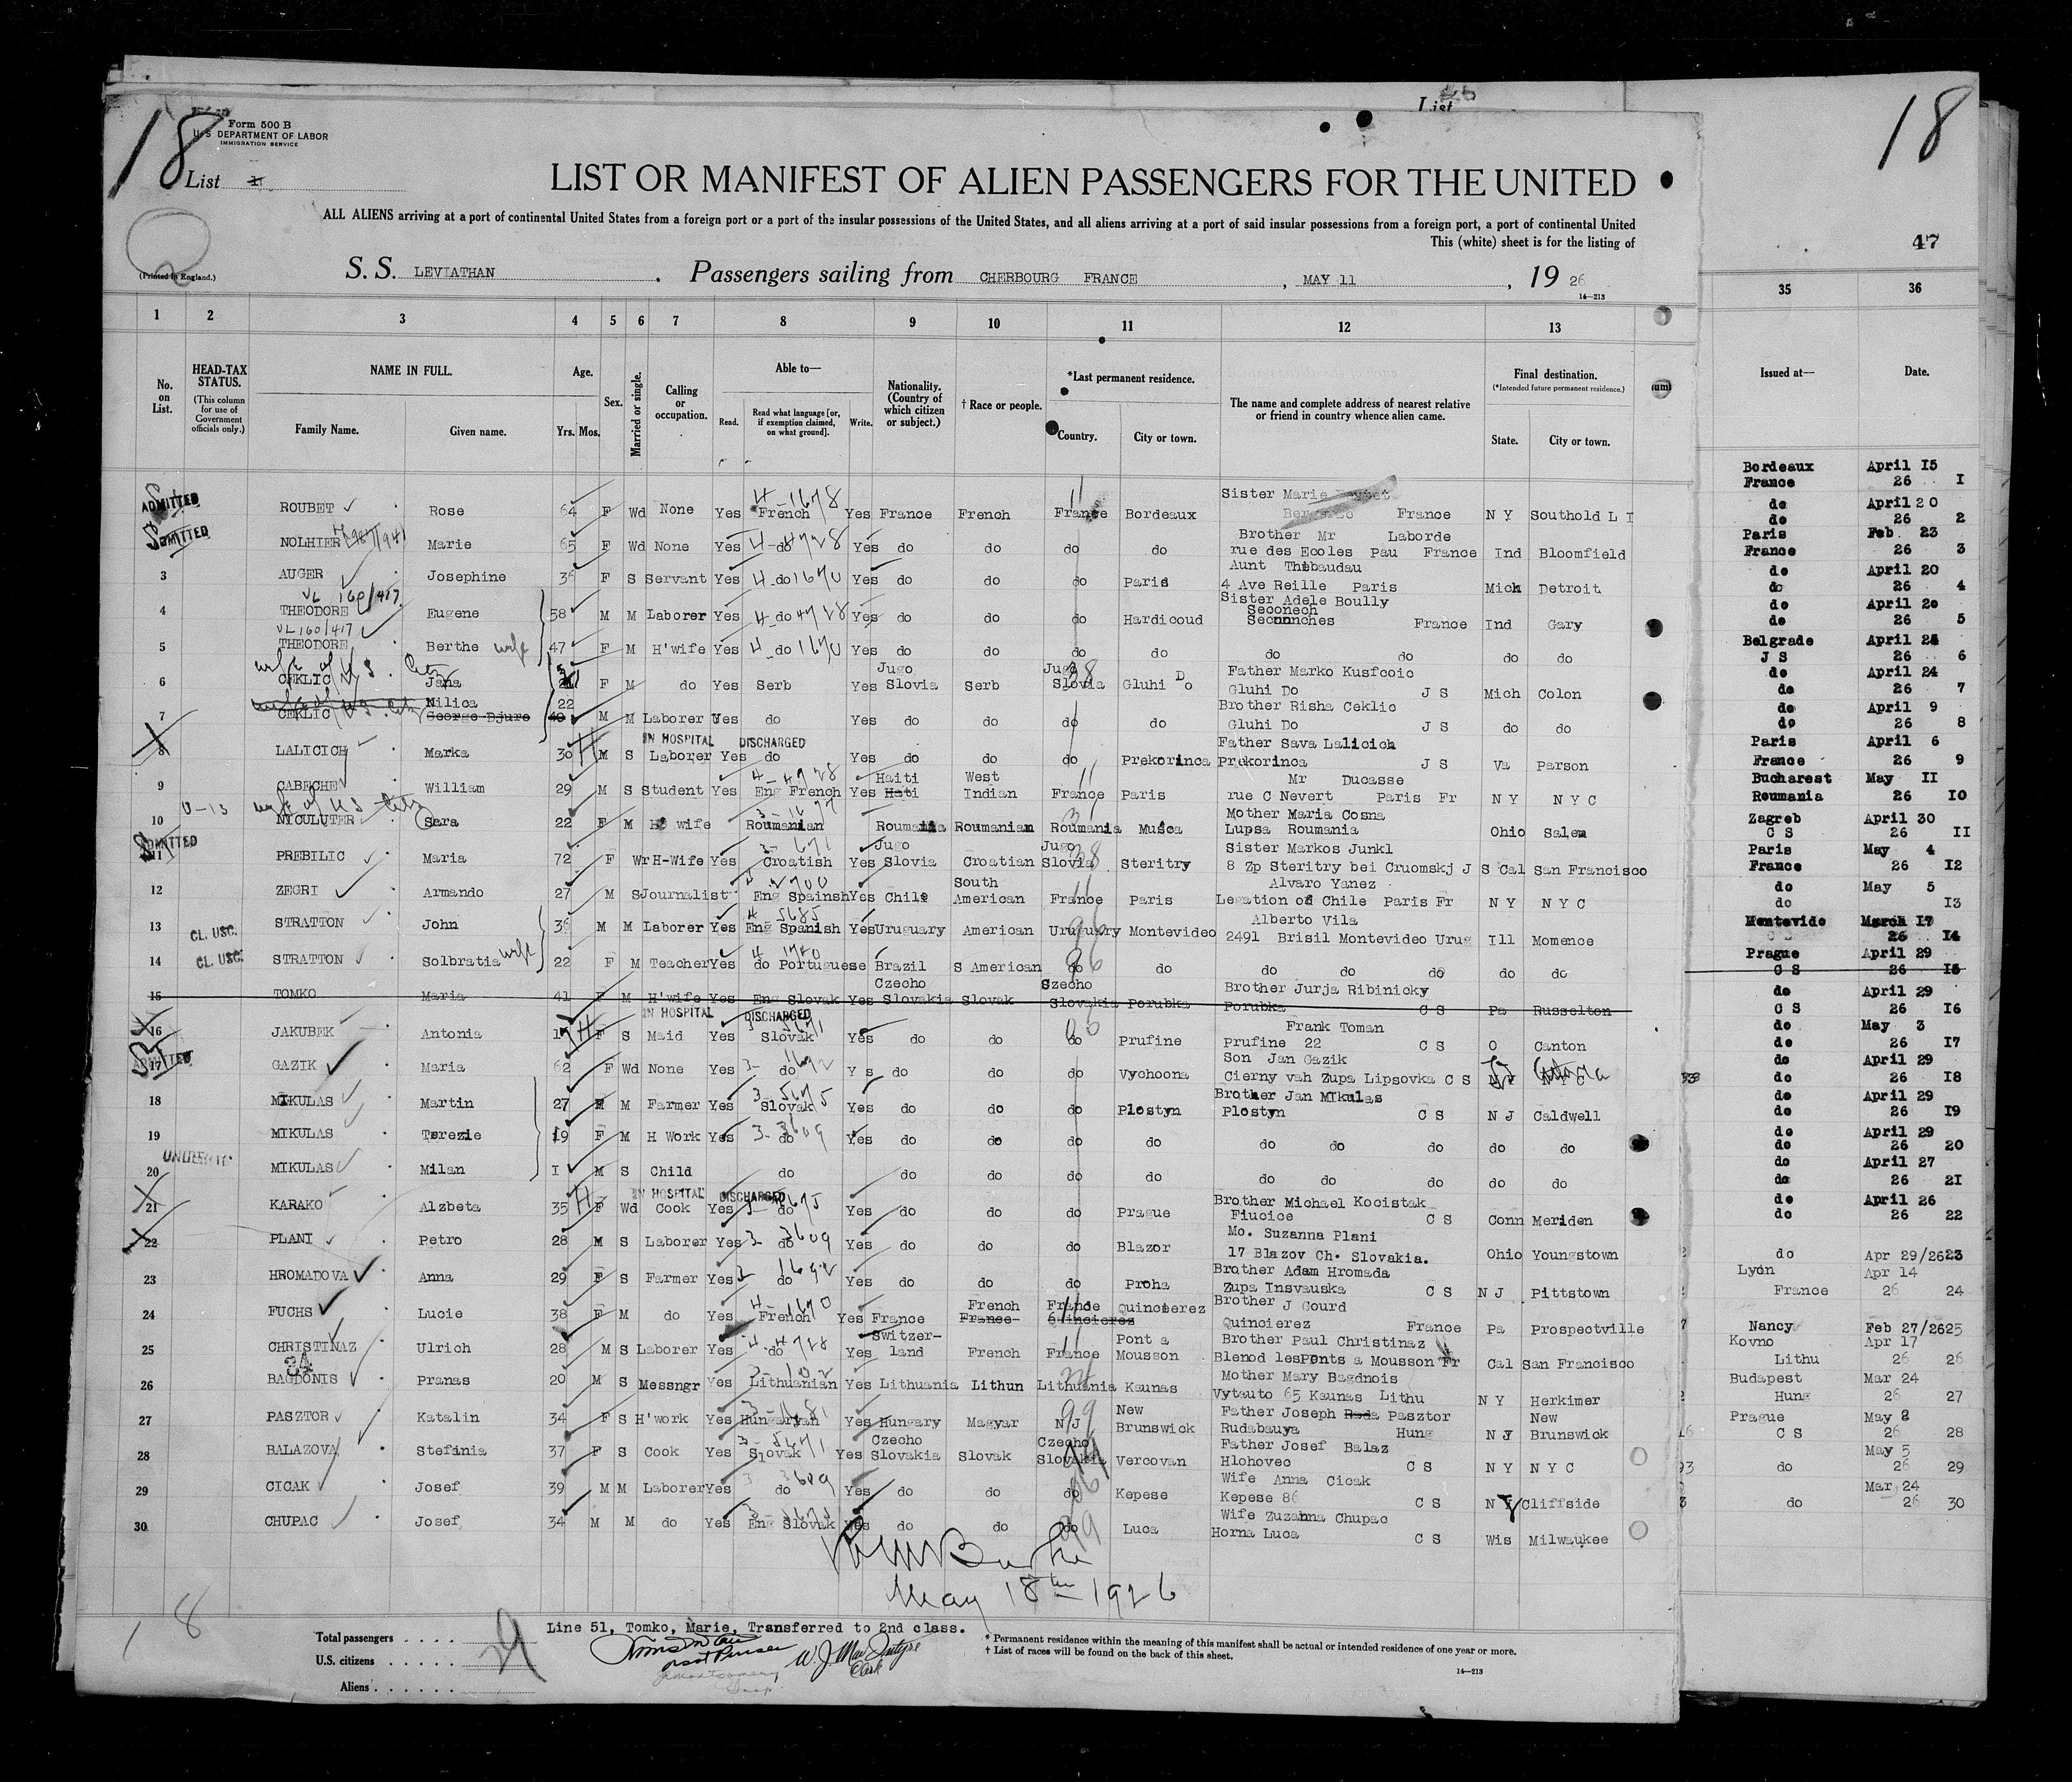 List
18
18
Form 500 B
U. S. DEPARTMENT OF LABOR
IMMIGRATION SERVICE
List
LIST OR MANIFEST OF ALIEN PASSENGERS FOR THE UNITED
ALL ALIENS arriving at a port of continental United States from a foreign port or a port of the insular possessions of the United States, and all aliens arriving at a port of said insular possessions from a foreign port, a port of continental United
This (white) sheet is for the listing of
47
(Printed in England.)
S. S. LEVIATHAN . Passengers sailing from CHERBOURG FRANCE , MAY 11 , 19 26
14—213
1 2 3 4 5 6 7 8 9 10 11 12 13 35 36
No. on List.
HEAD-TAX STATUS. (This column for use of Government officials only.)
NAME IN FULL.
Family Name. Given name.
Age. Yrs. Mos.
Sex.
Married or single.
Calling or occupation.
Able to—
Read. Read what language [or, if exemption claimed, on what ground]. Write.
Nationality. (Country of which citizen or subject.)
† Race or people.
*Last permanent residence.
Country. City or town.
The name and complete address of nearest relative or friend in country whence alien came.
Final destination.
(*Intended future permanent residence.)
State. City or town.
Issued at— Date.
ADMITTED ROUBET Rose 64 F Wd None Yes French 4-1678 Yes France French France Bordeaux Sister Marie France N Y Southold L I Bordeaux France April 15 26 1
ADMITTED NOLHIER Marie 65 F Wd None Yes do 4-4728 Yes do do do do Brother Mr Laborde rue des Ecoles Pau France Ind Bloomfield do do April 20 26 2
3 AUGER Josephine 36 F S Servant Yes do 4-1670 Yes do do do Paris Aunt Thibaudau 4 Ave Reille Paris Mich Detroit Paris France Feb. 23 26 3
VL 160/417
4 THEODORE Eugene 58 M M Laborer Yes do 4-4728 Yes do do do Hardicoud Sister Adele Boully Seconech Seconnches France Ind Gary do do April 20 26 4
VL 160/417
5 THEODORE Berthe wife 47 F M H'wife Yes do 4-1670 Yes do do do do do do do do do do April 20 26 5
wife of U S. Citz
6 CEKLIC Jana 21 F M do Yes Serb Yes Jugo Slovia Serb Jugo Slovia Gluhi Do Father Marko Kusfcoic Gluhi Do J S Mich Colon Belgrade J S April 24 26 6
7 CEKLIC Milica George Djuro 22 40 M M Laborer Yes do Yes do do do do Brother Risha Ceklic Gluhi Do J S do do do do April 24 26 7
IN HOSPITAL DISCHARGED
8 LALICICH Marka 30 H M S Laborer Yes do Yes do do do Prekorinca Father Sava Lalicich Prekorinca J S Va Parson do do April 9 26 8
9 CABECHE William 29 M S Student Yes Eng French 4-4728 Yes Haiti Hati West Indian France 11 Paris Mr Ducasse rue C Nevert Paris Fr N Y N Y C Paris France April 6 26 9
U-13 wife of U S Citz
10 NICULUTER Sara 22 F M H wife Roumanian Roumania Roumanian Roumania Musca Mother Maria Cosna Lupsa Roumania Ohio Salem Bucharest Roumania May 11 26 10
ADMITTED 11 PREBILIC Maria 72 F Wr H-Wife Yes Croatish 3-671 Yes Jugo Slovia Croatian Jugo Slovia 38 Steritry Sister Markos Junkl 8 Zp Steritry bei Cruomskj J S Cal San Francisco Zagreb C S April 30 26 11
12 ZEGRI Armando 27 M S Journalist Eng Spainsh Yes Chile South American France 11 Paris Alvaro Yanez Legation of Chile Paris Fr N Y N Y C Paris France May 4 26 12
13 CL. USC. STRATTON John 36 M M Laborer Yes Eng Spanish 4 5685 Yes Uruguary American Uruguary Montevideo Alberto Vila 2491 Brisil Montevideo Urug Ill Momence do do May 5 13
14 CL. USC. STRATTON Solbratia wife 22 F M Teacher Yes do Portuguese Brazil S American do do do do do do do Montevido March 17 26 14
15 TOMKO Maria 41 F M H'wife Yes Eng Slovak Yes Czecho Slovakia Slovak Szecho Slovakia Porubka Brother Jurja Ribinicky Porubka C S Pa Russelton Prague C S April 29 26 15
IN HOSPITAL DISCHARGED
16 JAKUBEK Antonia H F S Maid Yes Slovak Yes do do do Prufine Frank Toman Prufine 22 C S O Canton do C S April 29 26 16
ADMITTED 17 GAZIK Maria 62 F Wd None Yes do 3-1692 Y s do do do Vychoona Son Jan Gazik Cierny vah Zupa Lipsovka C S do do May 3 26 17
18 MIKULAS Martin 27 M M Farmer Yes Slovak 3 5675 Yes do do do Plostyn Brother Jan MIkulas Plostyn C S N J Caldwell do do April 29 26 18
19 MIKULAS Terezie 19 F M H Work Yes do 3-3609 Yes do do do do do do do do do do do April 29 26 19
20 MIKULAS Milan I M S Child do do do do do do do do do do do do April 29 26 20
IN HOSPITAL DISCHARGED
21 KARAKO Alzbeta 35 H F Wd Cook Yes do Yes do do do Prague Brother Michael Kocistak Fiucice C S Conn Meriden do do April 27 26 21
22 PLANI Petro 28 M S Laborer Yes do 3 3609 Yes do do do Blazor Mo. Suzanna Plani 17 Blazov Ch. Slovakia. Ohio Youngstown do do April 26 26 22
23 HROMADOVA Anna 29 F S Farmer Yes do 3 1692 Yes do do do Proha Brother Adam Hromada Zupa Insvauska C S N J Pittstown do Apr 29/26 23
24 FUCHS Lucie 38 F M do Yes French 4-1670 Yes France French France France Quincierez Quincierez Brother J Gourd Quincierez France Pa Prospectville Lyon France Apr 14 26 24
25 CHRISTINAZ Ulrich 28 M S Laborer Yes do 4 4728 Yes Switzer-land French France 11 Pont a Mousson Brother Paul Christinaz Blenod lesPonts a Mousson Fr Cal San Francisco Nancy Feb 27/26 25
26 BAGDONIS Pranas 20 M S Messngr Yes Lithuanian Yes Lithuania Lithun Lithuania Kaunas Mother Mary Bagdnois Vytauto 65 Kaunas Lithu N Y Herkimer Kovno Lithu Apr 17 26 26
27 PASZTOR Katalin 34 F S H'work Yes Hungaryan Yes Hungary Magyar N J 99 New Brunswick Father Joseph Pasztor Rudabauya Hung N J New Brunswick Budapest Hung Mar 24 26 27
28 BALAZOVA Stefinia 37 F S Cook Yes Slovak 3-5671 Yes Czecho Slovakia Slovak Czecho Slovakia Vercovan Father Josef Balaz Hlohovec C S N Y N Y C Prague C S May 8 26 28
29 CICAK Josef 39 M M Laborer Yes do 3 3609 Yes do do do Kepese Wife Anna Cicak Kepese 86 C S N Cliffside do May 5 26 29
30 CHUPAC Josef 34 M M do Yes Eng Slovak Yes do do do 99 Luca Wife Zuzanna Chupac Horna Luca C S Wis Milwaukee do Mar 24 26 30
May 18th 1926
18
Line 51, Tomko, Marie, Transferred to 2nd class.
Total passengers
U.S. citizens
Aliens
W. J. MacIntyre
Clerk
* Permanent residence within the meaning of this manifest shall be actual or intended residence of one year or more.
† List of races will be found on the back of this sheet.
14—213